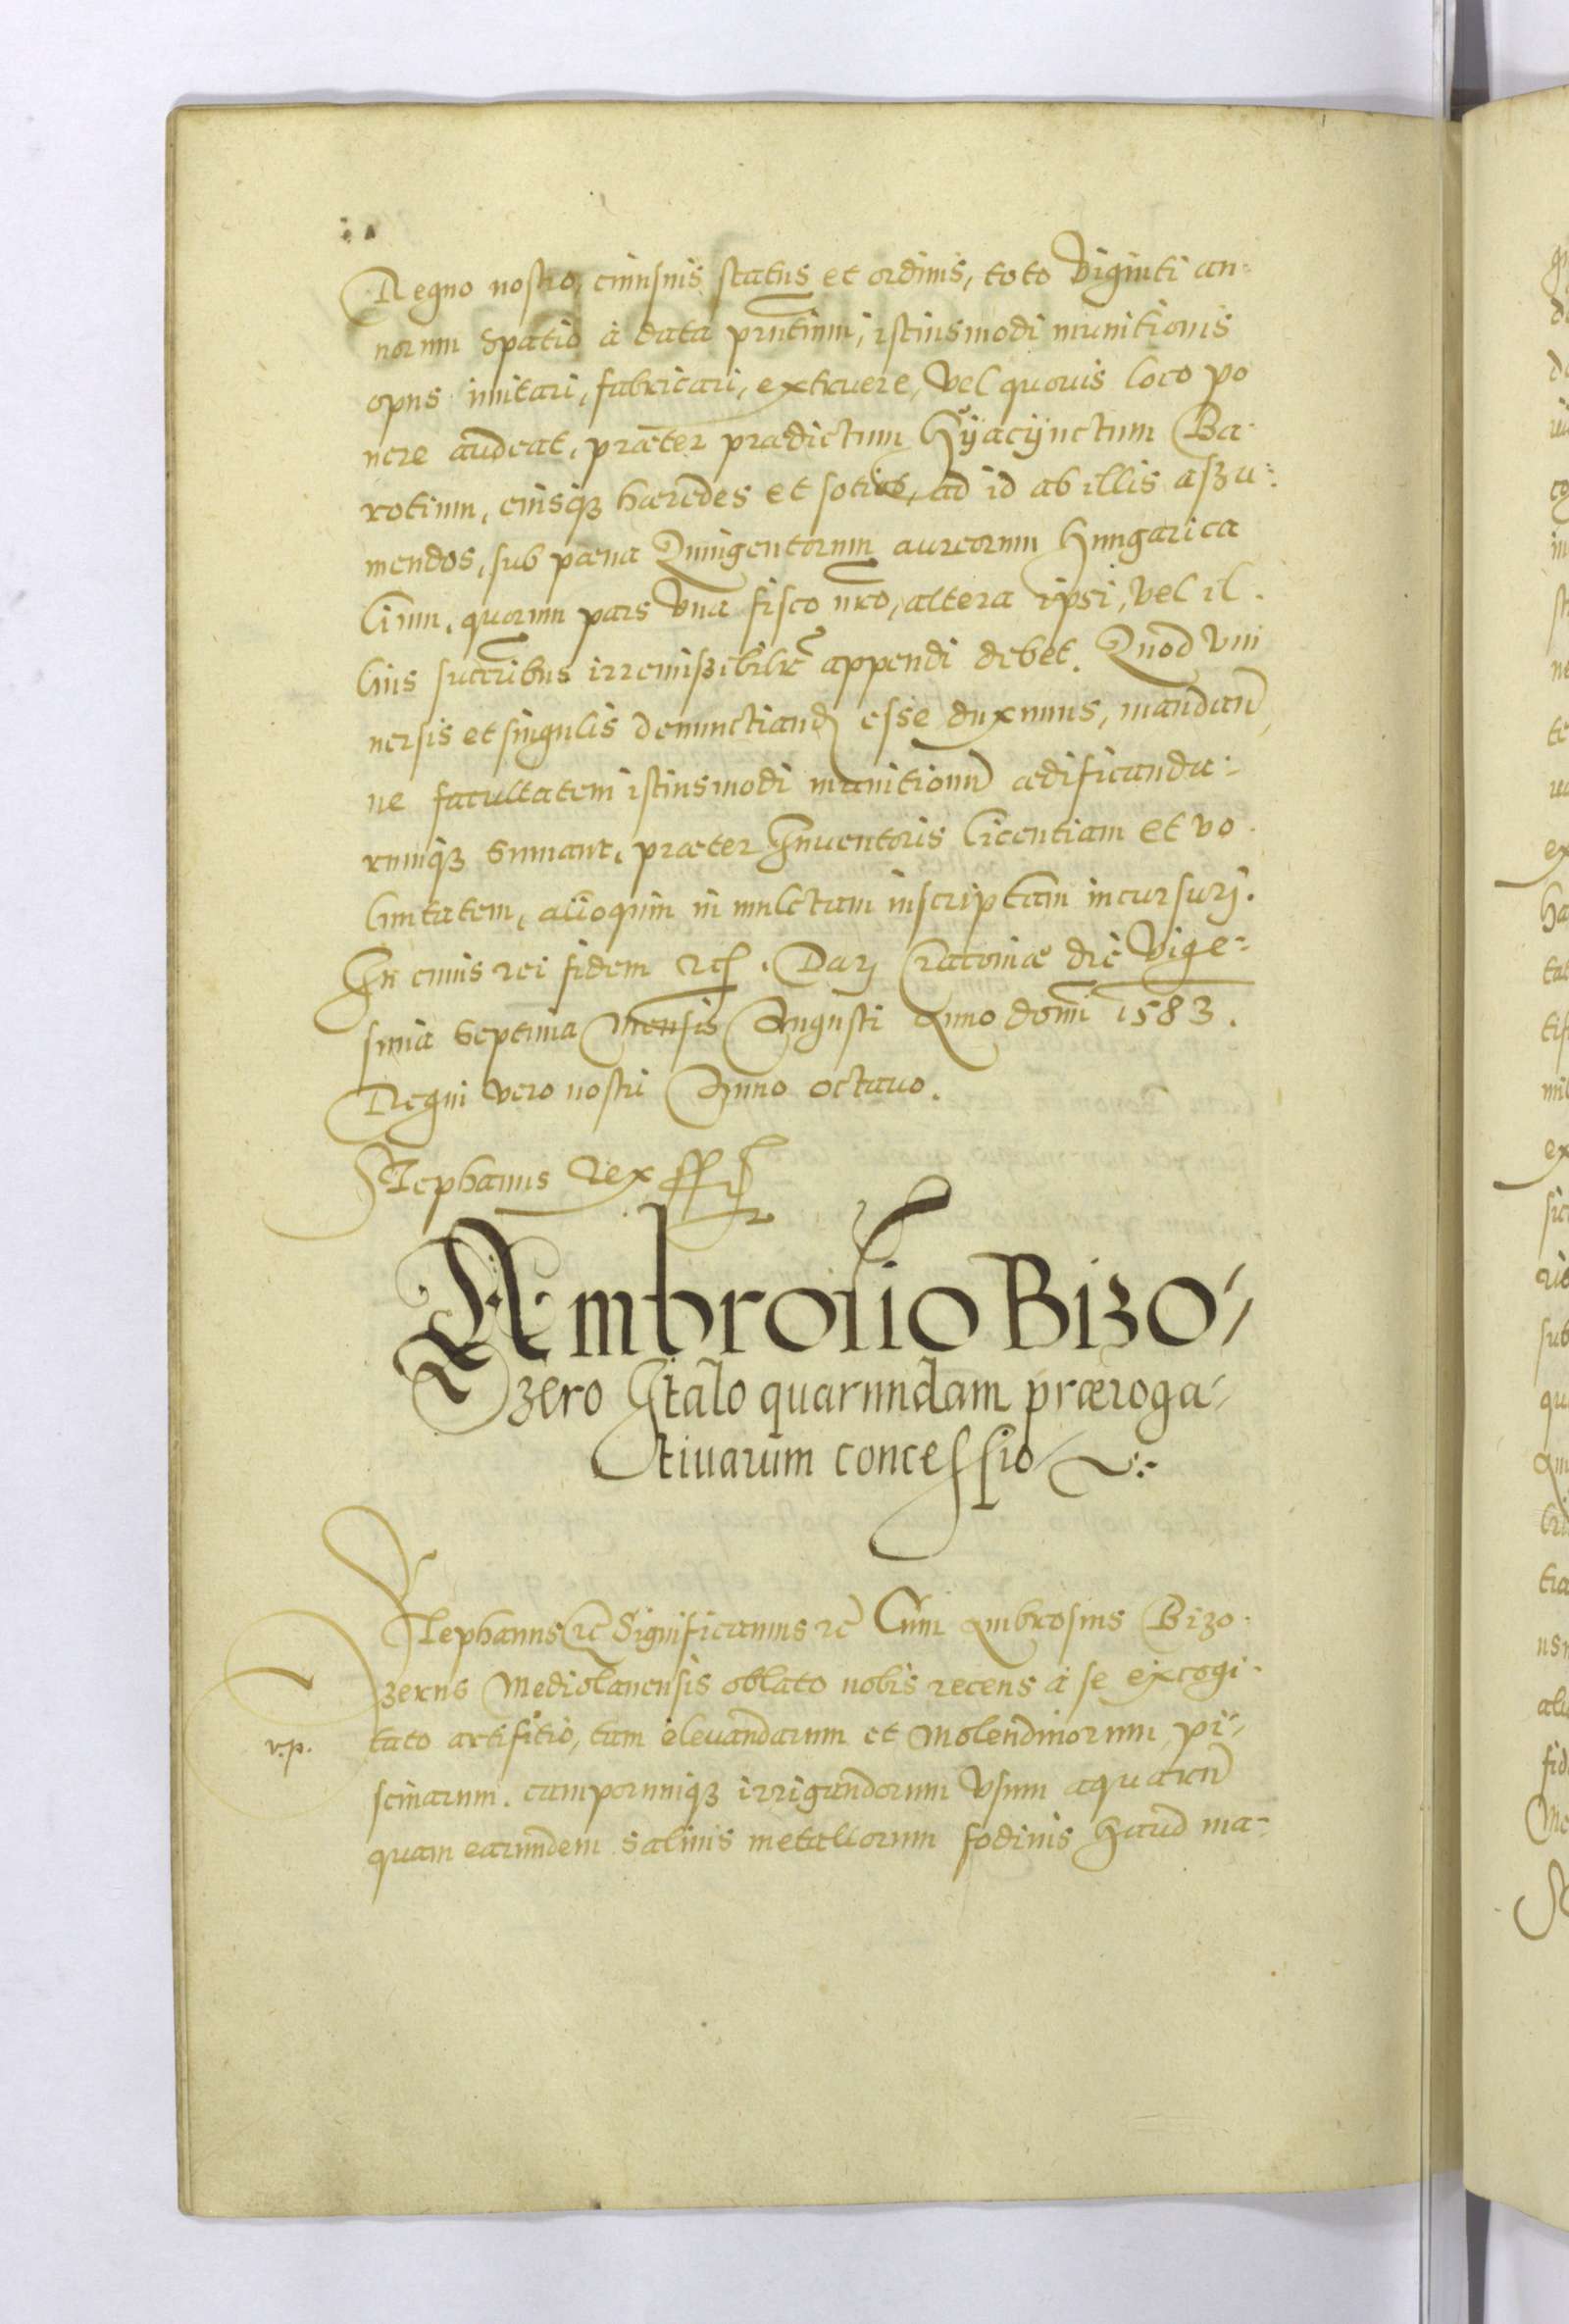 Regno nostro, cuiusuis status et ordinis, toto Viginti an-
norum Spatio à data prntium, istiusmodi munitionis
opus imitari, fabricari, extruere, Vel quouis loco po
nere audeat, præter prædictum Hyacynctum Ba-
rotium, eiusq3 hæredes et sotios, ad id ab illis assu-
mendos, sub pæna Quingentorum aureorum Hungarica
lium, quorum pars Vna fisco nro, altera ipsi, vel il-
lius succribus irremissibilr appendi debet. Quod Vni
uersis et singulis denunctiand esse duximus, mandan
ne facultatem istiusmodi munitionũ ædificanda-
rumq3 sumant, præter Inuentoris licentiam et vo-
luntatem, alioquin in mulctam inscriptam incursurj.
In cuius rei fidem etc. Datj Cracouiæ die Vige-
sima Septima Mensis Augusti Anno domi 1583.
Regni vero nostri Anno octauo.
Stephanus Rex sst
Ambrosio Bizo-
zero Italo quarundam præroga-
tiuarum concessio
Stephanus etc Significamus etc Cum Ambrosius Bizo-
zerus Mediolanensis oblato nobis recens à se excogi-
v.p.
tato artifitio, tam eleuandarum et Molendinorum, pi-
scinarum, camporumq3 irrigandorum Vsum aquarũ
quam earundem salinis metallorum fodinis haud ma-